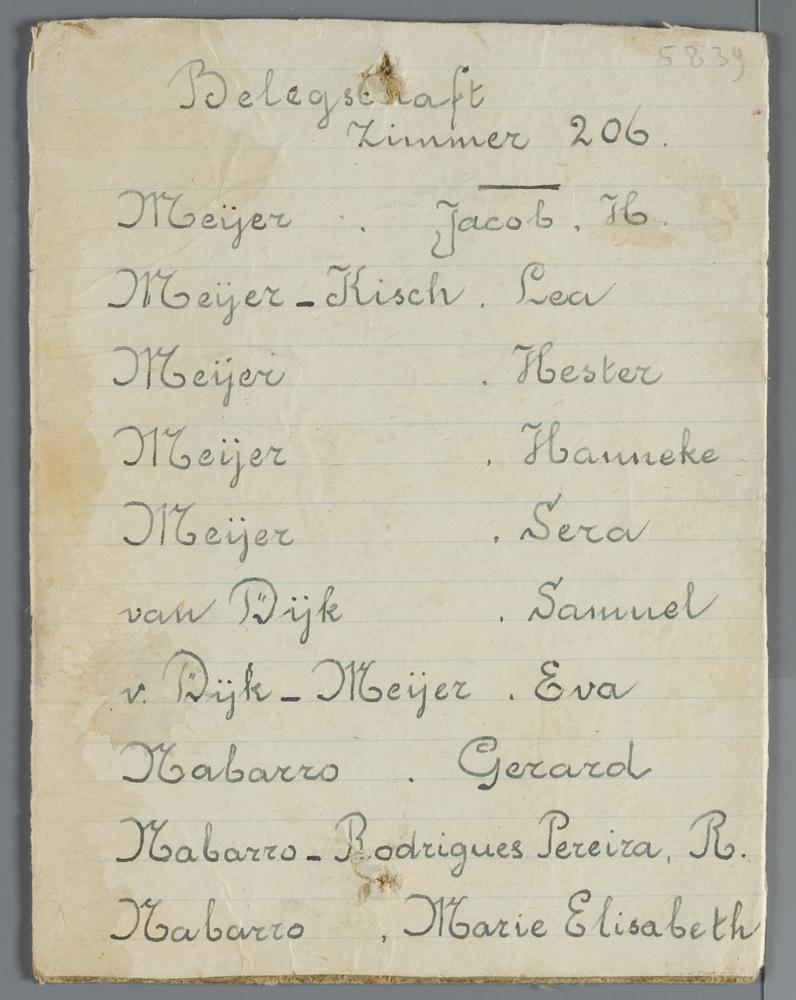 5839
Belegschaft
Zimmer 206.
Meijer . Jacob. H.
Meijer - Kisch . Lea
Meijer . Hester
Meijer . Hanneke
Meijer . Sera
van Dijk . Samuel
v. Dijk - Meijer . Eva
Nabarro . Gerard
Nabarro - Rodrigues Pereira, R.
Nabarro , Marie Elisabeth